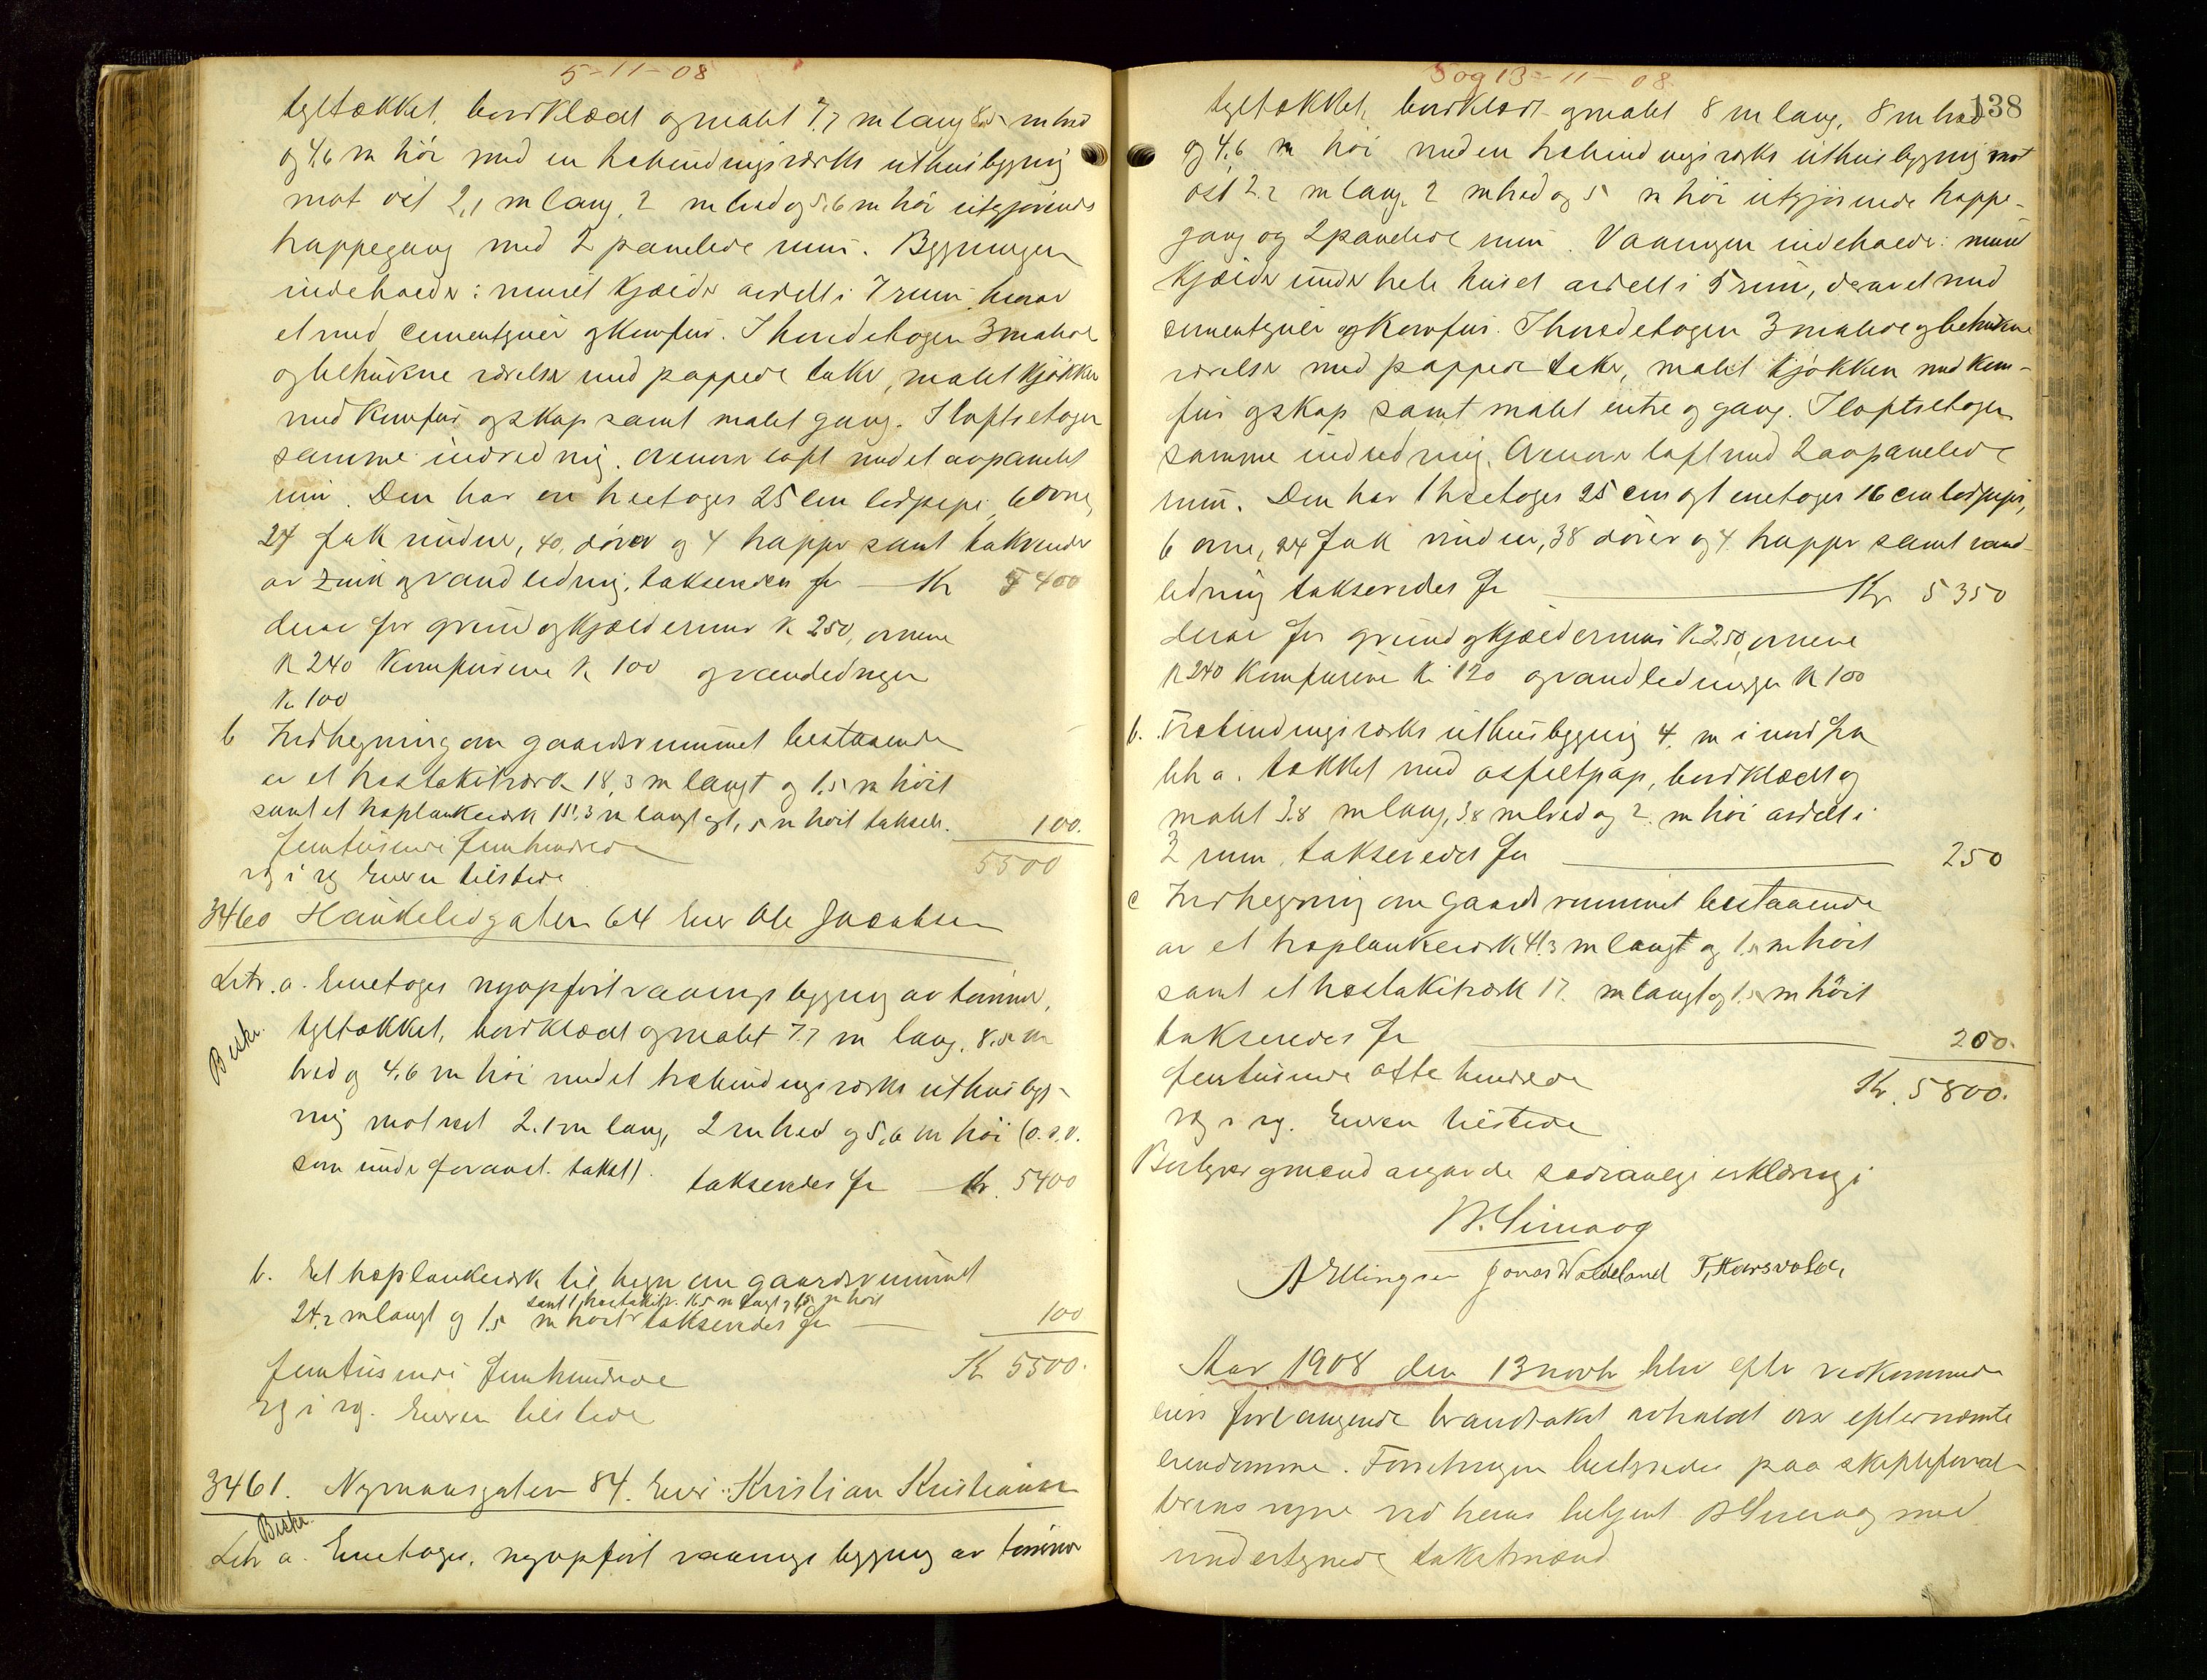 5-11-08
tegltækket, bordklædt og malet 7.7 m lang 8.5 m bred
og 4,6 m høi med en træbindingsværks uthusbygning
mot øst 2,1 m lang, 2 m bred og 5,6 m høi utgjørende
trappegang med 2 panelede rum. Bygningen
indeholder: muret kjælder avdelt i 7 rum hvorav
et med cementgulv og komfur. I hovedetagen 3 malede
og betrukne værelser med pappede taker, malet kjøkken
med komfur og skap samt malet gang. I loftsetagen
samme indredning. Øverste loft med et avpanelet
rum. Den har en treetages 25 cm lodpipe, 6 ovne,
27 fak vinduer, 40 døre og 4 trapper samt takrender
av zink og vandledning, takseredes for — Kr 5400
derav for grund og kjældermur kr 250, ovnene
kr 240 komfurene kr 100 og vandledningen
kr 100
b Indhegning om gaardsrummet bestaaende
av et træstakitværk 18,3 m langt og 1.5 m høit
samt et træplankeværk 15,3 m langt og 1,5 m høit takseres. 100.
femtusinde femhundrede 5500
rg i rg Eieren tilstede
3460 Haukeligaten 64 Eier Ole Jacobsen
Litr. a. Enetages nyopført vaaningsbygning av tømmer,
Beskr.
tegltækket, bordklædt og malet 7.7 m lang, 8.5 m
bred og 4,6 m høi med et træbindingsværks uthusbyg-
ning mot vest 2.1 m lang, 2 m bred og 5,6 m høi (o.s.v.
som under foranst. takst). takseredes for — Kr. 5400
b. Et træplankeværk til hegn om gaardsrummet
samt 1 træstakitv. 16.5 m langt og 1.5 m høit
24.2 m langt og 1.5 m høit takseredes for — 100
femtusinde femhundrede Kr 5500.
rg i rg. Eieren tilstede
3461. Nymansgaten 84. Eier: Kristian Kristiansen
Beskr.
Litr a. Enetages, nyopført vaaningsbygning av tømmer
5 og 13-11-08
138
tegltækket, bordklædt og malet 8 m lang, 8 m bred
og 4,6 m høi med en træbindingsværks uthusbygning mot
øst 2.2 m lang, 2 m bred og 5 m høi utgjørende trappe-
gang og 2 panelede rum. Vaaningen indeholder: muret
kjælder under hele huset avdelt i 5 rum, derav et med
cementgulv og komfur. I hovedetagen 3 malede og betrukne
værelser med pappede taker, malet kjøkken med kom-
fur og skap samt malet entre og gang. I loftsetagen
samme indredning. Øverste loft med 2 avpanelede
rum. Den har 1 treetages 25 cm og 1 enetages 16 cm lodpiper,
6 ovne, 24 fak vinduer, 38 døre og 4 trapper samt vand-
ledning takseredes for — Kr 5350
derav for grund og kjældermur kr 250, ovnene
kr 240 komfurene kr 120 og vandledningen kr 100
b. Træbindingsværks uthusbygning 4. m i nord fra
litr a. tækket med asfaltpap, bordklædt og
malet 3.8 m lang, 3.8 m bred og 2. m høi avdelt i
2 rum, takseredes for — 250
c Indhegning om gaardsrummet bestaaende
av et træplankeværk 41.3 m langt og 1.5 m høit
samt et træstakitværk 17. m langt og 1.5 m høit
takseredes for — 200.
femtusinde otte hundrede Kr. 5800.
rg i rg. Eieren tilstede
Bestyrer og mænd avgav de sedvanlige erklæringer
A Ellingsen Jonas Waldeland T. Hårsvold
Aar 1908 den 13 novbr blev efter vedkommende
eiers forlangende brandtakst avholdt over efternævnte
eiendomme. Forretningen bestyredes paa skapteforval-
terens vegne ved hans betjent med
undertegnede takstmænd